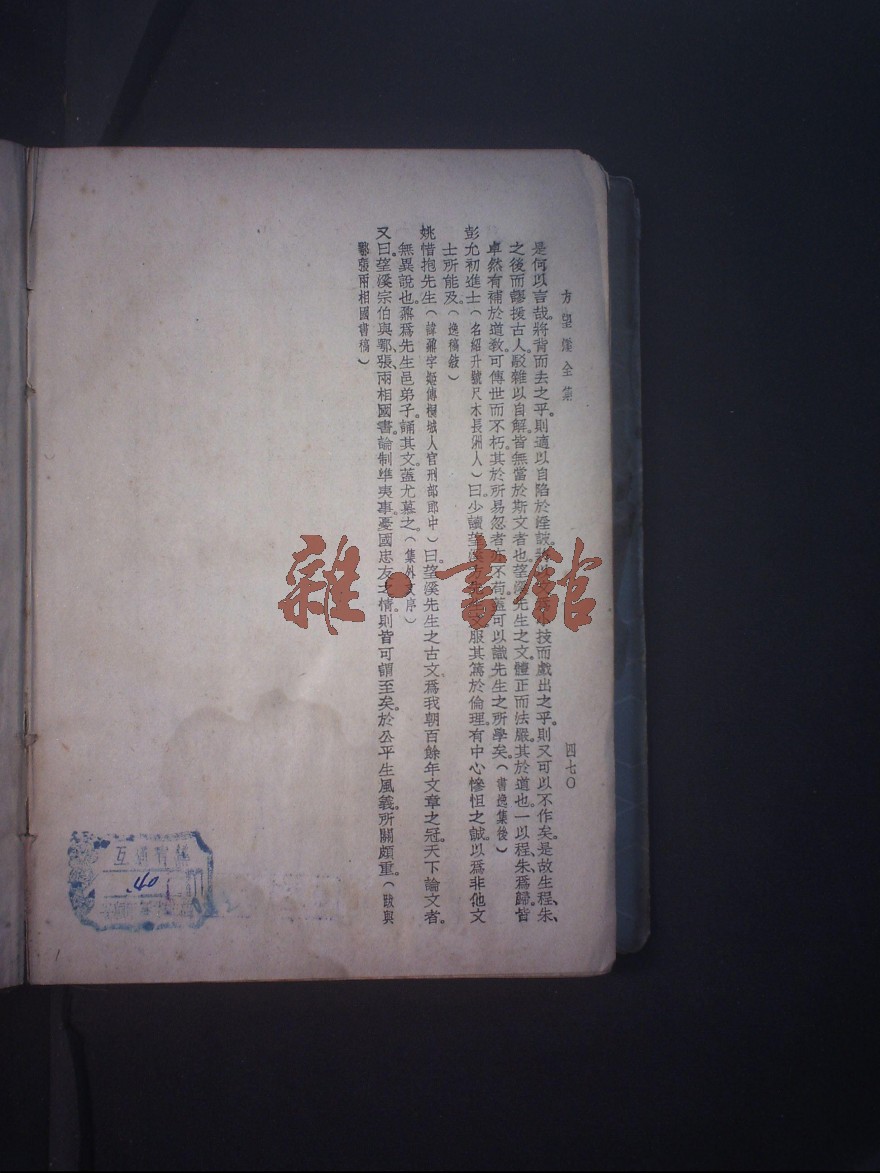 方望溪全集
四七〇
是何以言哉。將背而去之乎。則適以自陷於淫詖。將技而戲出之乎。則又可以不作矣。是故生程、朱、
之後而謬援古人。駁雜以自解。皆無當於斯文者也。望溪先生之文。體正而法嚴。其於道也。一以程、朱、爲歸。皆
卓然有補於道教。可傳世而不朽。其於所易忽者亦不苟。蓋可以識先生之所學矣。(書逸集後)
彭允初進士(名紹升號尺木長洲人)曰。少讀望溪先生文。服其篤於倫理。有中心慘怛之誠。以爲非他文
士所能及。(逸稿敘)
姚惜抱先生(諱鼐字姬傳桐城人官刑部郎中)曰。望溪先生之古文。爲我朝百餘年文章之冠。天下論文者。
無異說也。鼐爲先生邑弟子。誦其文。蓋尤慕之。(集外文序)
又曰。望溪宗伯與鄂、張、兩相國書。論制準夷事。憂國忠友之情。則皆可謂至矣。於公平生風義。所關頗重。(跋與
鄂張兩相國書稿)
雜·書館